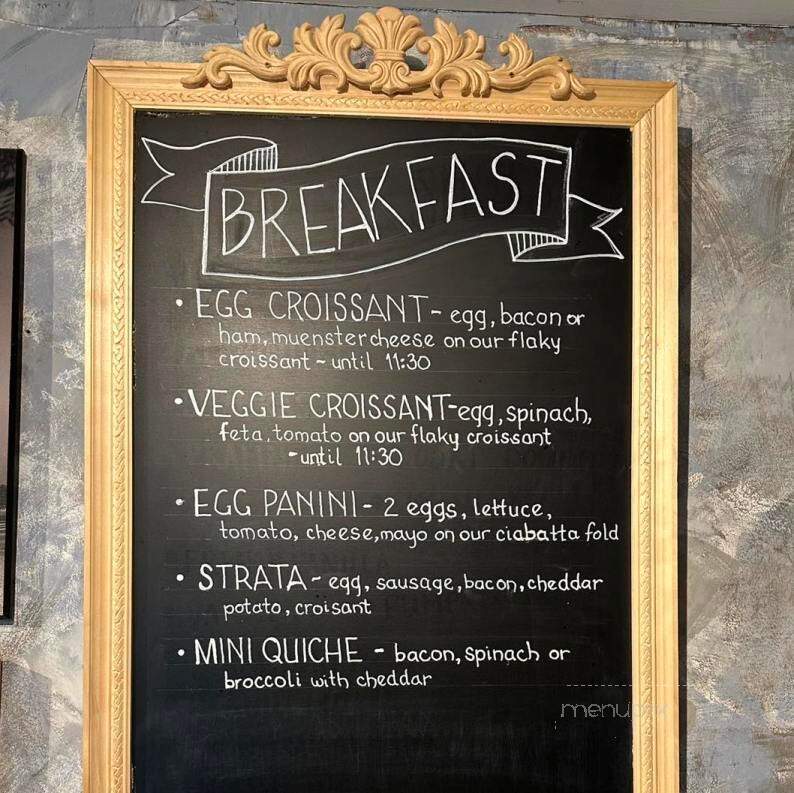 BREAKFAST
• EGG CROISSANT - egg, bacon or
ham, muenster cheese on our flaky
croissant ~ until 11:30
• VEGGIE CROISSANT - egg, spinach,
feta, tomato on our flaky croissant
~ until 11:30
• EGG PANINI - 2 eggs, lettuce,
tomato, cheese, mayo on our ciabatta fold
• STRATA - egg, sausage, bacon, cheddar
potato, croisant
• MINI QUICHE - bacon, spinach or
broccoli with cheddar